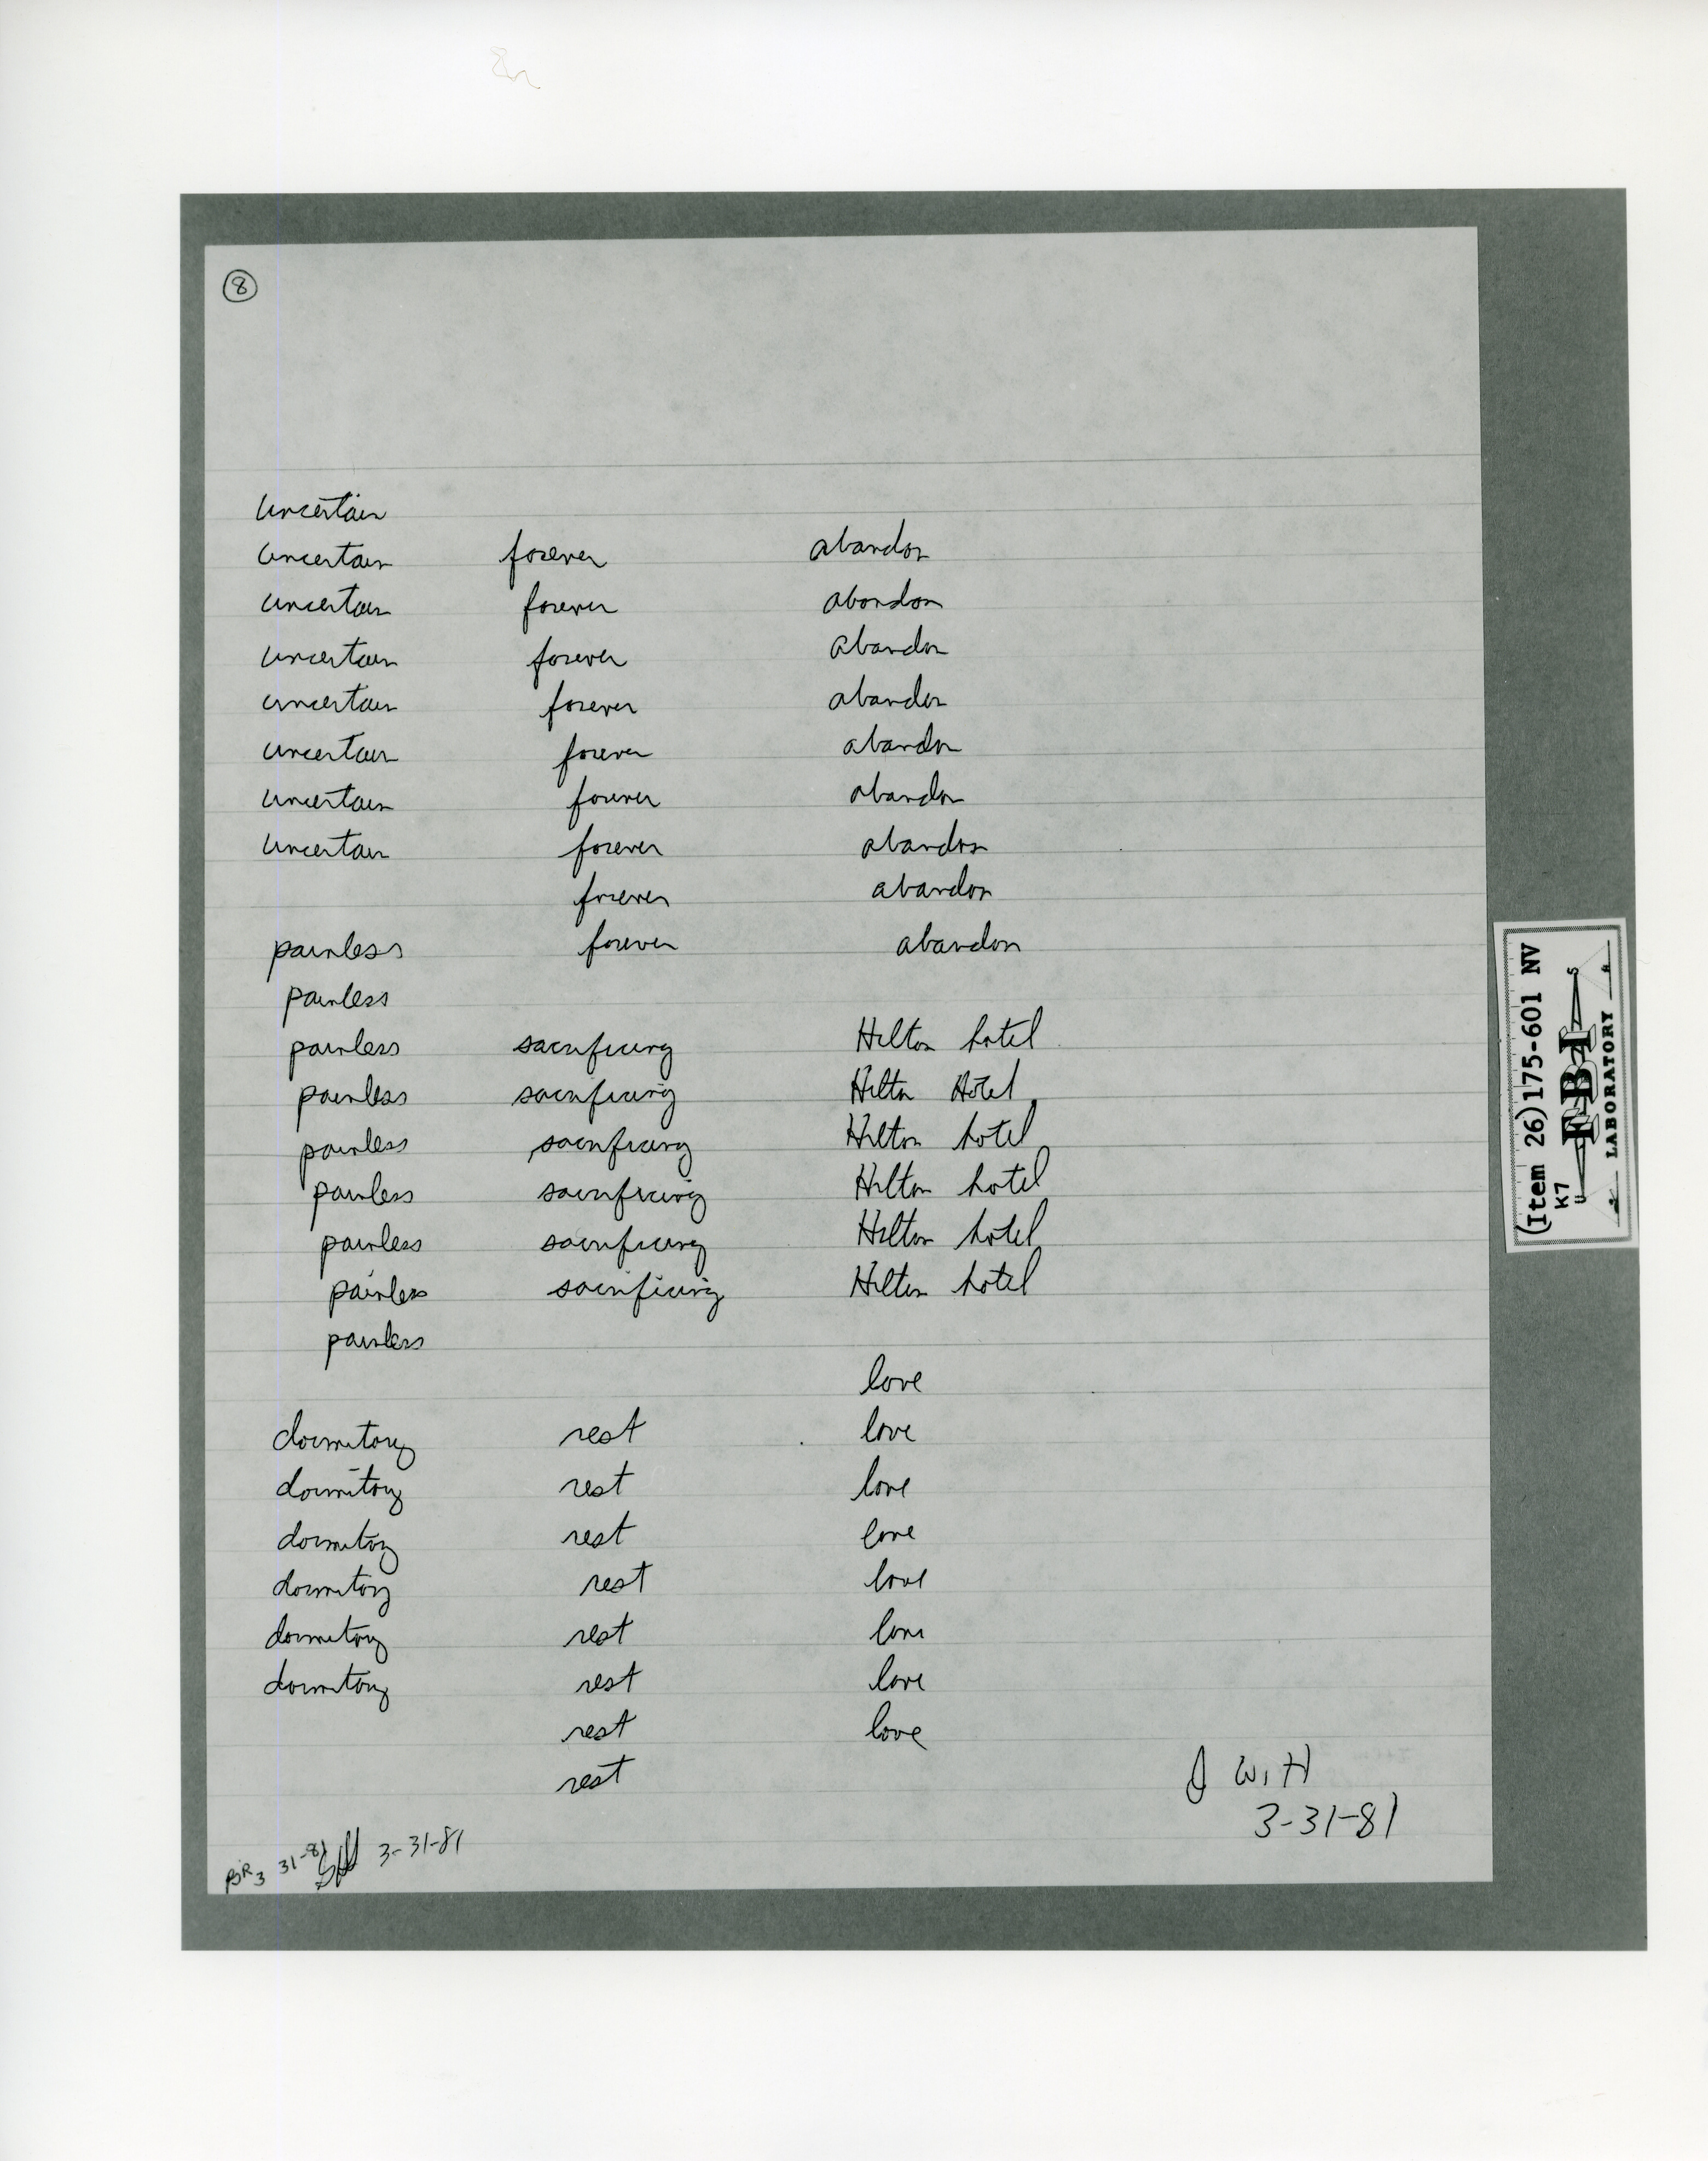 8
uncertain
uncertain forever abandon
uncertain forever abandon
uncertain forever abandon
uncertain forever abandon
uncertain forever abandon
uncertain forever abandon
uncertain forever abandon
forever abandon
painless forever abandon
painless
painless sacrificing Hilton hotel
painless sacrificing Hilton Hotel
painless sacrificing Hilton hotel
painless sacrificing Hilton hotel
painless sacrificing Hilton hotel
painless sacrificing Hilton hotel
painless
love
dormitory rest love
dormitory rest love
dormitory rest love
dormitory rest love
dormitory rest love
dormitory rest love
rest love
rest
JWH
3-31-81
3-31-81
(Item 26)175-601 NV
K7
FBI
LABORATORY